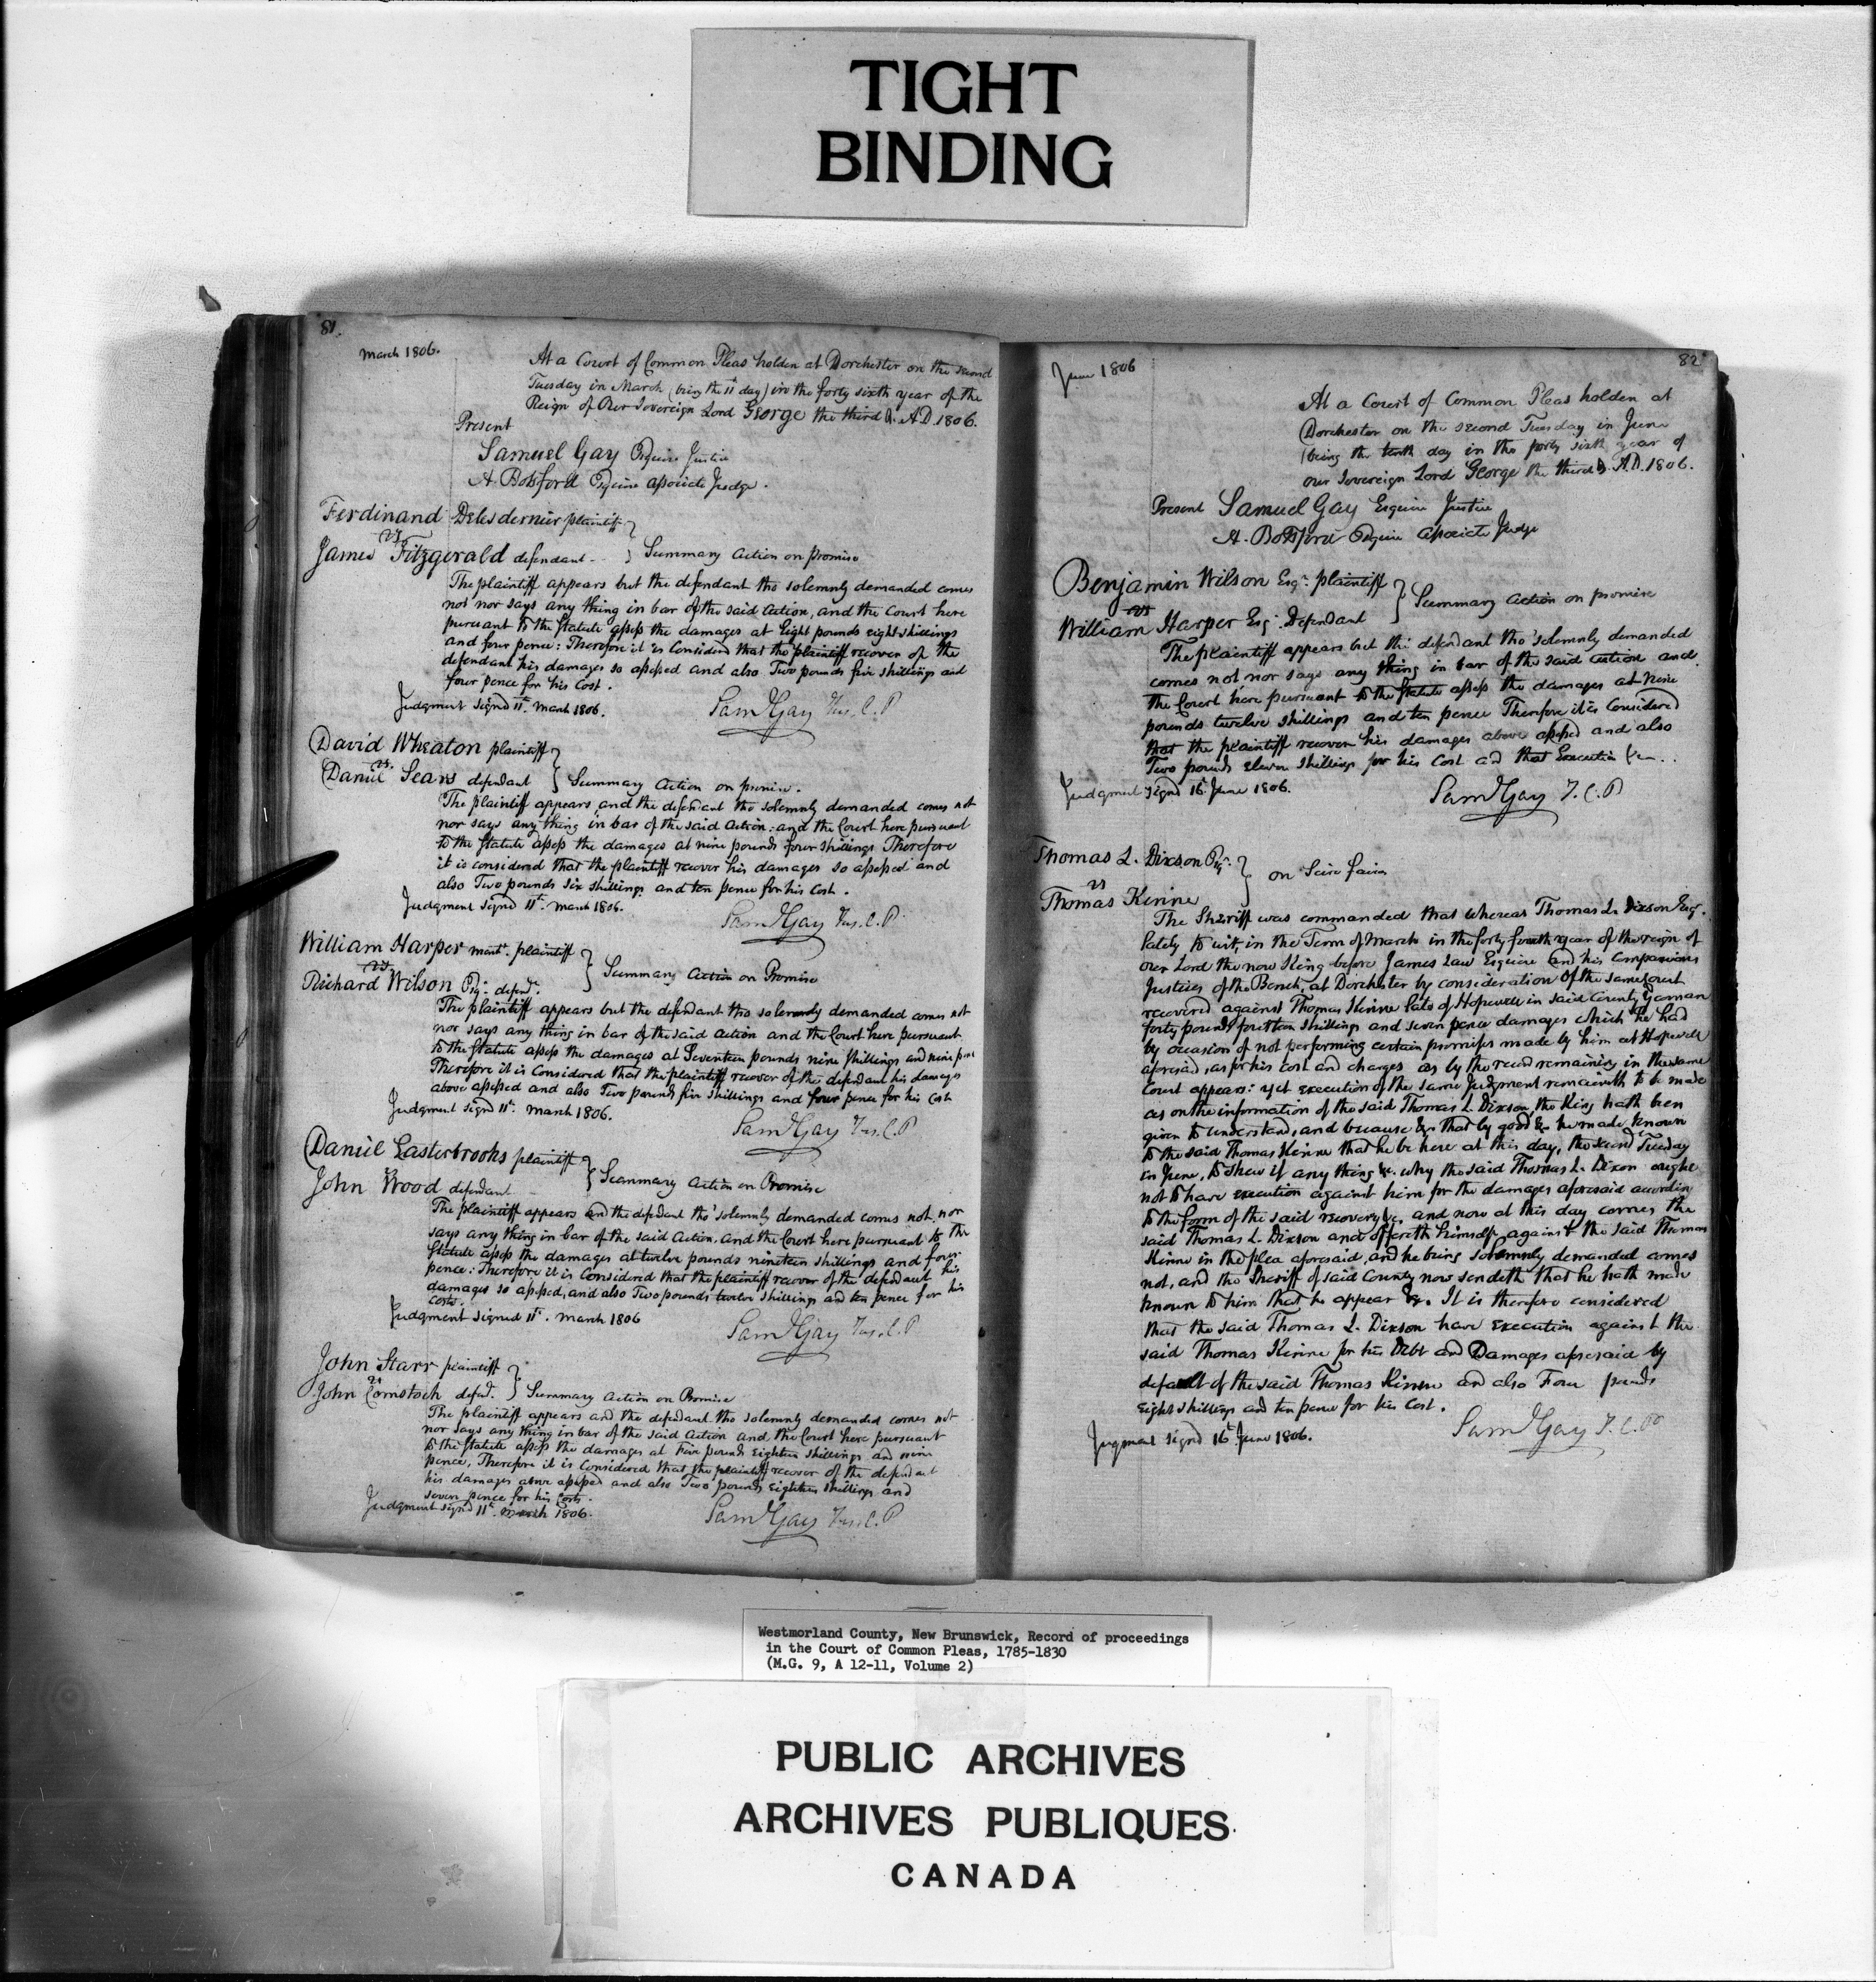 TIGHT
BINDING
81.
March 1806.
At a Court of Common Pleas holden at Dorchester on the second
Tuesday in March (being the 11th day) in the forty sixth year of the
Reign of Our Sovereign Lord George the third &. A.D. 1806.
Present
Samuel Gay Esquire Justice
A. Botsford Esquire associate Judge.
Ferdinand Delesdernier plaintiff
vs
James Fitzgerald defendant - } Summary Action on promise
The plaintiff appears but the defendant tho solemnly demanded comes
not nor says any thing in bar of the said Action, and the Court here
pursuant to the Statute assess the damages at Eight pounds eight shillings
and four pence: Therefore it is Considerd that the plaintiff recover of the
defendant his damages so assessed and also Two pounds five shillings and
four pence for his Cost.
Judgment signd 11th. March 1806.
Saml Gay Jus. C. P
David Wheaton plaintiff
vs.
Daniel Sears defendant } Summary Action on promise.
The plaintiff appears and the defendant tho solemnly demanded comes not
nor says any thing in bar of the said Action: and the Court here pursuant
to the Statute assess the damages at nine pounds four shillings Therefore
it is considered that the plaintiff recover his damages so assessed and
also Two pounds six shillings and ten pence for his Cost.
Judgment signd 11th. March 1806.
Saml Gay Jus. C. P
William Harper mercht. plaintiff
vs.
Richard Wilson Esqr. defendt. } Summary Action on Promise
The plaintiff appears but the defendant tho solemnly demanded comes not
nor says any thing in bar of the said Action and the Court here pursuant
to the Statute assess the damages at Seventeen pounds nine shillings and nine pence
Therefore it is Considered that the plaintiff recover of the defendant his damages
above assessed and also Two pounds five shillings and four pence for his Cost
Judgment signd 11th. March 1806.
Saml Gay Jus. C. P
Daniel Easterbrooks plaintiff
vs
John Wood defendant } Summary Action on Promise
The plaintiff appears and the defendant tho' solemnly demanded comes not, nor
says any thing in bar of the said Action. and the Court here pursuant to the
Statute assess the damages at twelve pounds nineteen shillings and four
pence: Therefore it is Considered that the plaintiff recover of the defendant his
damages so assessed, and also Two pounds twelve shillings and ten pence for his
costs.
Judgment signed 11th. March 1806
Saml Gay Jus. C. P
John Starr plaintiff
vs
John Comstock defend. } Summary Action on Promise
The plaintiff appears and the defendant tho solemnly demanded comes not
nor says any thing in bar of the said Action and the Court here pursuant
to the Statute assess the damages at Five pounds Eighteen shillings and nine
pence, Therefore it is Considered that the plaintiff recover of the defendant
his damages above assessed and also Two pounds eighteen shillings and
seven pence for his Costs.
Judgment signd 11th. March 1806.
Saml Gay Jus. C. P
82
June 1806
At a Court of Common Pleas holden at
Dorchester on the second Tuesday in June
(being the tenth day in the forty sixth year of
our Sovereign Lord George the third &. A.D. 1806.
Present Samuel Gay Esquire Justice
A. Botsford Esquire associate Judge
Benjamin Wilson Esqr. plaintiff
vs
William Harper Esq. Defendant } Summary Action on promise
The plaintiff appears but the defendant tho' solemnly demanded
comes not nor says any thing in bar of the said action and
the Court here pursuant to the Statute assess the damages at nine
pounds twelve shillings and ten pence Therefore it is Considered
that the plaintiff recover his damages above assessed and also
Two pounds eleven shillings for his Cost and that Execution
Judgment signd 16th June 1806.
Saml Gay J. C. P
Thomas L. Dixson Esqr.
vs } on Scire facias
Thomas Kinne
The Sheriff was commanded that whereas Thomas L. Dixson Esqr.
lately to wit, in the Term of March in the forty fourth year of the reign of
our Lord the now King before James Law Esquire and his Companions
Justices of the Bench, at Dorchester by consideration of the same Court
recovered against Thomas Kinne late of Hopewell in said County Yeoman
forty pounds fourteen shillings and seven pence damages which he had
by occasion of not performing certain promises made by him at Hopewell
aforesaid, as for his Cost and charges as by the record remaining in the same
Court appears: yet execution of the same Judgment remaineth to be made
as on the information of the said Thomas L. Dixson, the King hath been
given to understand, and because &c. that by good &c he made known
to the said Thomas Kinne that he be here at this day, the second Tuesday
in June, to shew if any thing &c. why the said Thomas L. Dixson ought
not to have execution against him for the damages aforesaid according
to the form of the said recovery &c, and now at this day comes the
said Thomas L. Dixson and offereth himself against the said Thomas
Kinne in the plea aforesaid, and he being solemnly demanded comes
not, and the Sheriff of said County now sendeth that he hath made
known to him that he appear &c. It is therefore considered
that the said Thomas L. Dixson have execution against the
said Thomas Kinne for his Debt and Damages aforesaid by
default of the said Thomas Kinne and also Four pounds
eight shillings and ten pence for his Cost.
Jugment signd 16th June 1806.
Saml Gay J. C. P
Westmorland County, New Brunswick, Record of proceedings
in the Court of Common Pleas, 1785-1830
(M.G. 9, A 12-11, Volume 2)
PUBLIC ARCHIVES
ARCHIVES PUBLIQUES
CANADA